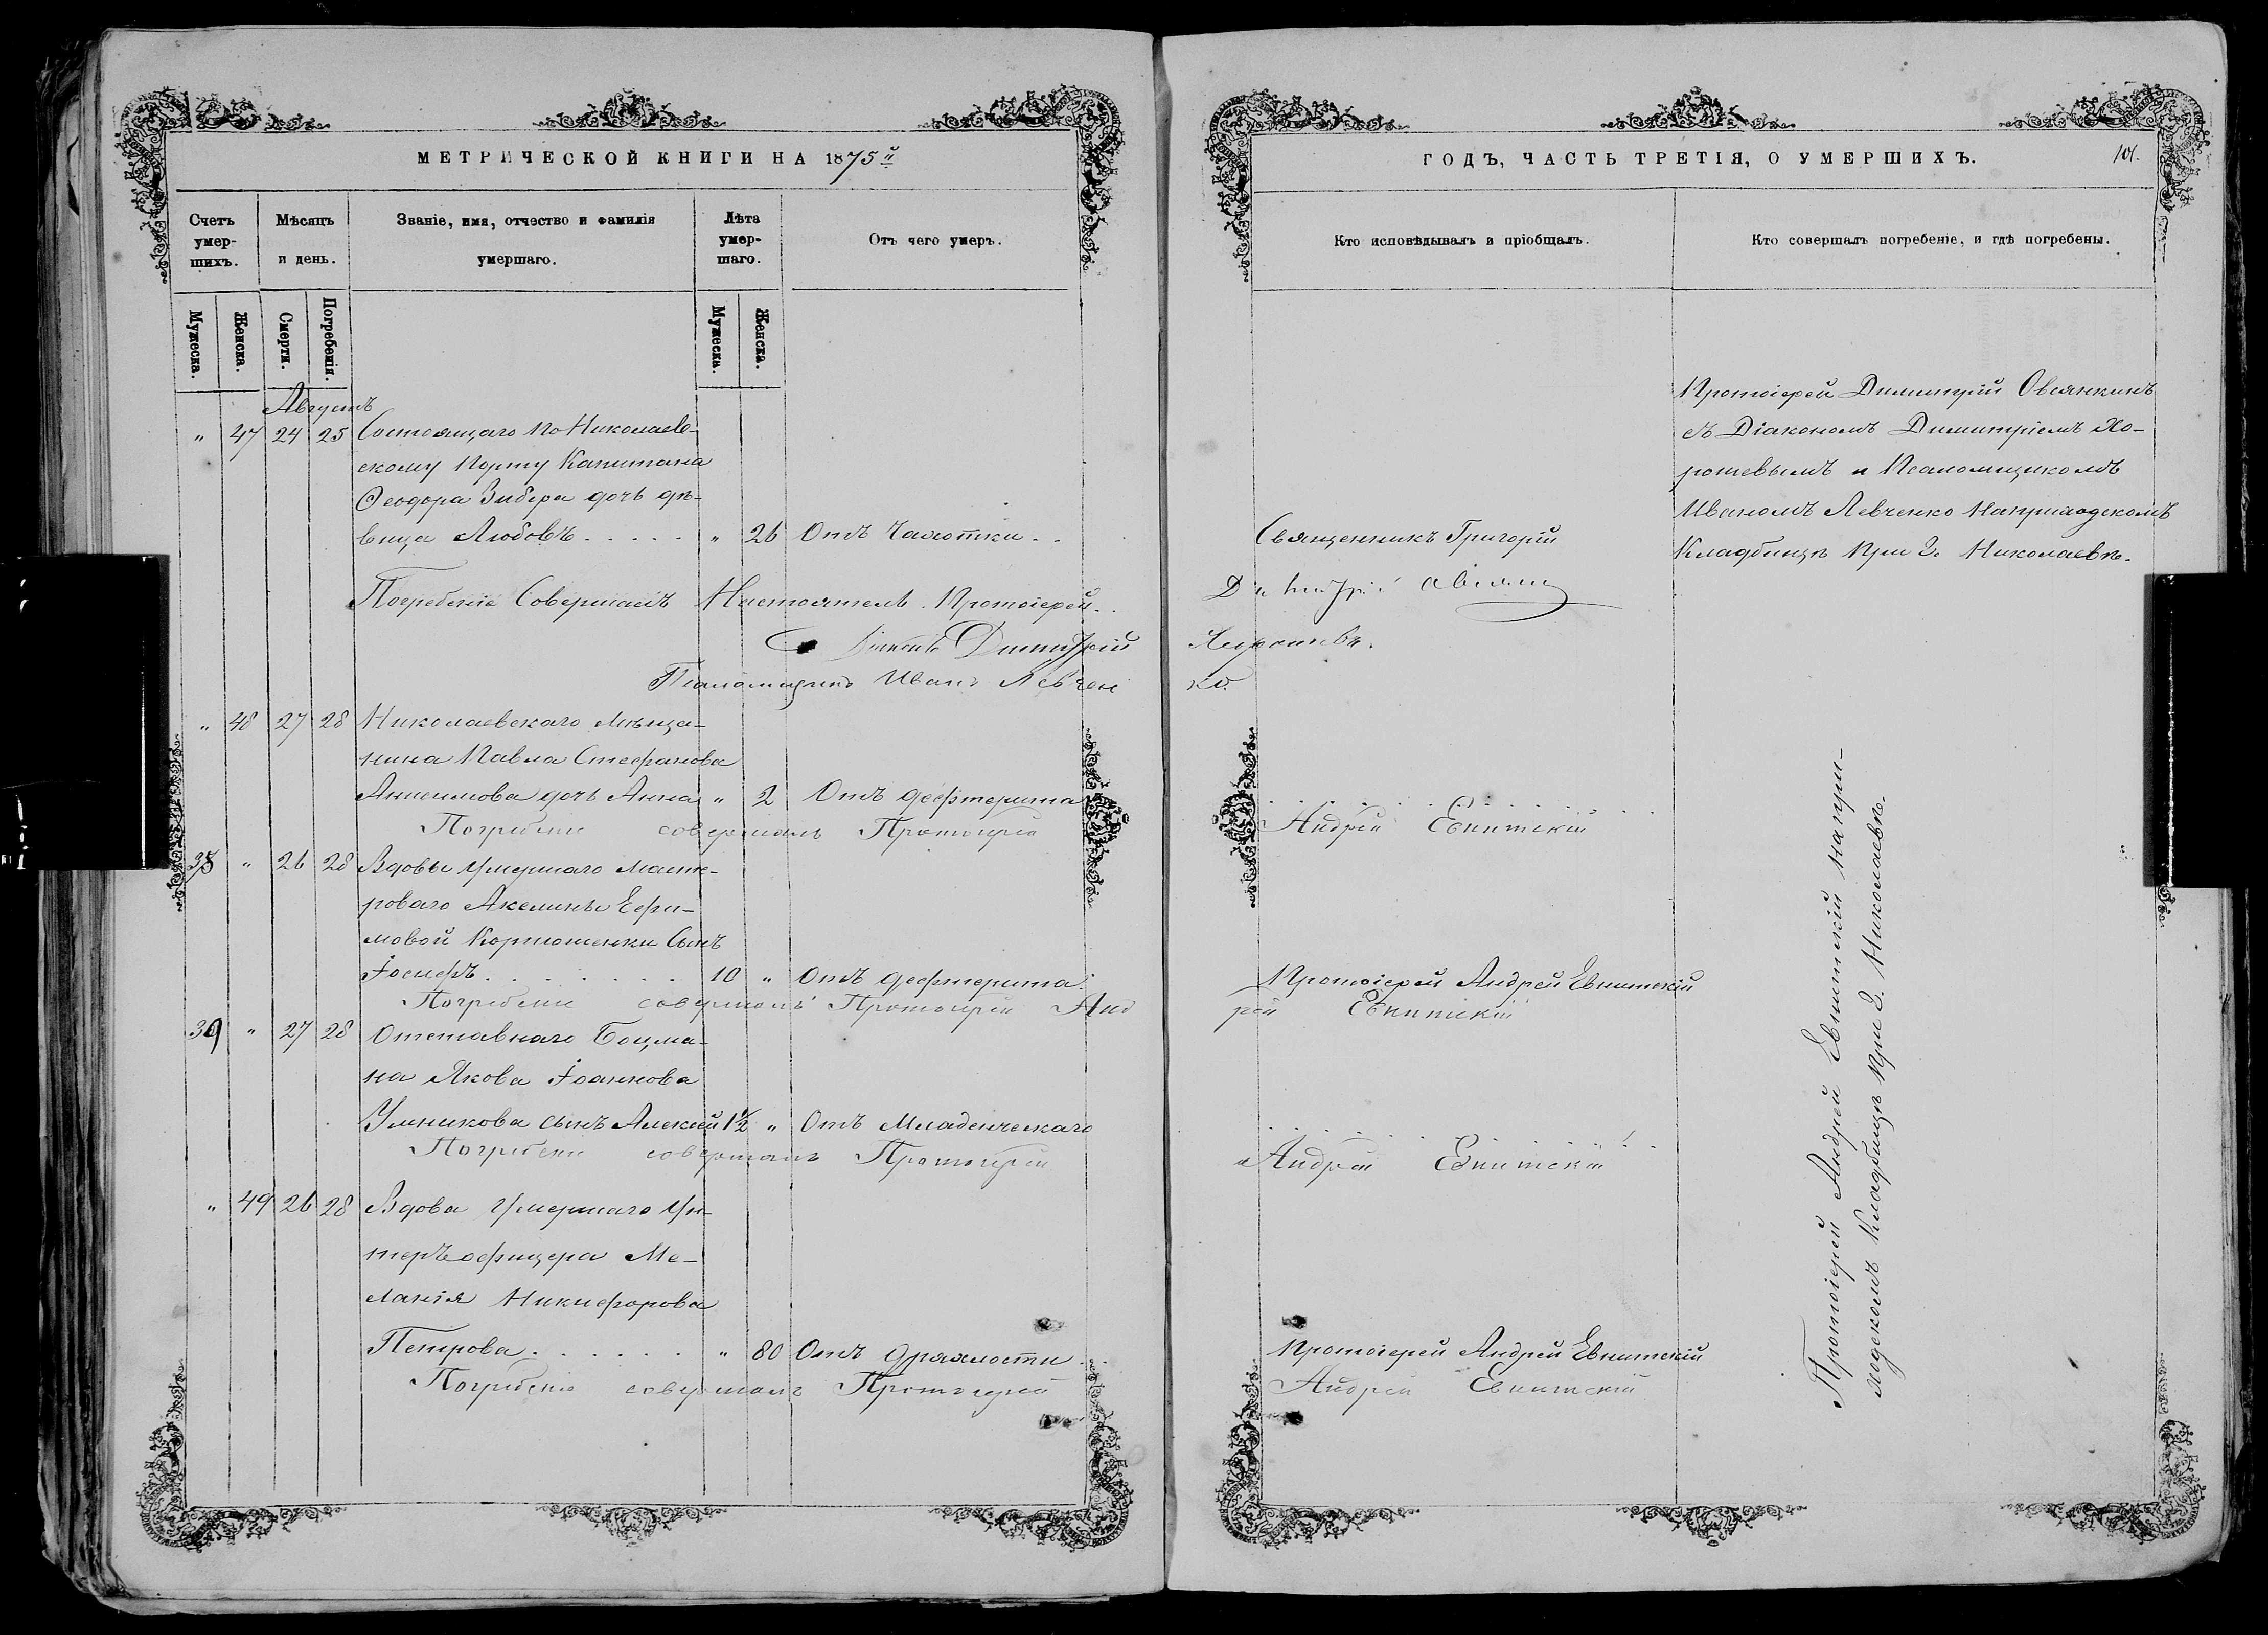 МЕТРИЧЕСКОЙ КНИГИ НА 1875й
Счетъ умер-шихъ.
Мѣсяцъ и день.
Званіе, имя, отчество и фамилія умершаго.
Лѣта умер-шаго.
Отъ чего умеръ.
Мужеска.
Женска.
Смерти.
Погребенія.
Мужеска.
Женска.
Августъ
" 47 24 25 Состоящаго по Николаев-
скому Порту Капитана
Ѳеодора Зибера дочь дѣ-
вица Любовь . . . . . " 26 Отъ Чахотки . .
Погребеніе Совершалъ Настоятель Протоіерей
Діаконъ Димитрій
Псаломщикъ Иванъ Левчен
" 48 27 28 Николаевскаго мѣща-
нина Павла Стефанова
Анисимова дочь Анна " 2 Отъ дефтерита
Погребеніе совершалъ Протоіерей
38 " 26 28 Вдовы умершаго масте-
роваго Акелины Ефи-
мовой Кортошенки Сынъ
Іосифъ . . . . . . . 10 " Отъ дефтерита.
Погребеніе совершалъ Протоіерей Анд
39 " 27 28 Отставнаго Боцма-
на Якова Іоаннова
Умникова сынъ Алексей 1½ " Отъ Младенческаго
Погребеніе совершалъ Протоіерей
" 49 26 28 Вдова умершаго Ун-
теръ офицера Ме-
ланія Никифорова
Петрова . . . . . . " 80 Отъ дряхлости . .
Погребеніе совершалъ Протоіерей
ГОДЪ, ЧАСТЬ ТРЕТІЯ, О УМЕРШИХЪ.
101.
Кто исповѣдывалъ и пріобщалъ.
Кто совершалъ погребеніе, и гдѣ погребены.
Протоіерей Димитрій Овсянкинъ
съ Діакономъ Димитріемъ Хо-
рошевымъ и Псаломщикомъ
Иваномъ Левченко На приходскомъ
Кладбищѣ при г. Николаевѣ.
Священникъ Григорій
Димитрій
Хорошевъ.
ко.
Андрей Евнитскій
Протоіерей Андрей Евнитскій
рей Евнитскій
Андрей Евнитскій
Протоіерей Андрей Евнитскій
Андрей Евнитскій
Протоіерей Андрей Евнитскій на при-
ходскомъ Кладбищѣ при г. Николаевѣ.